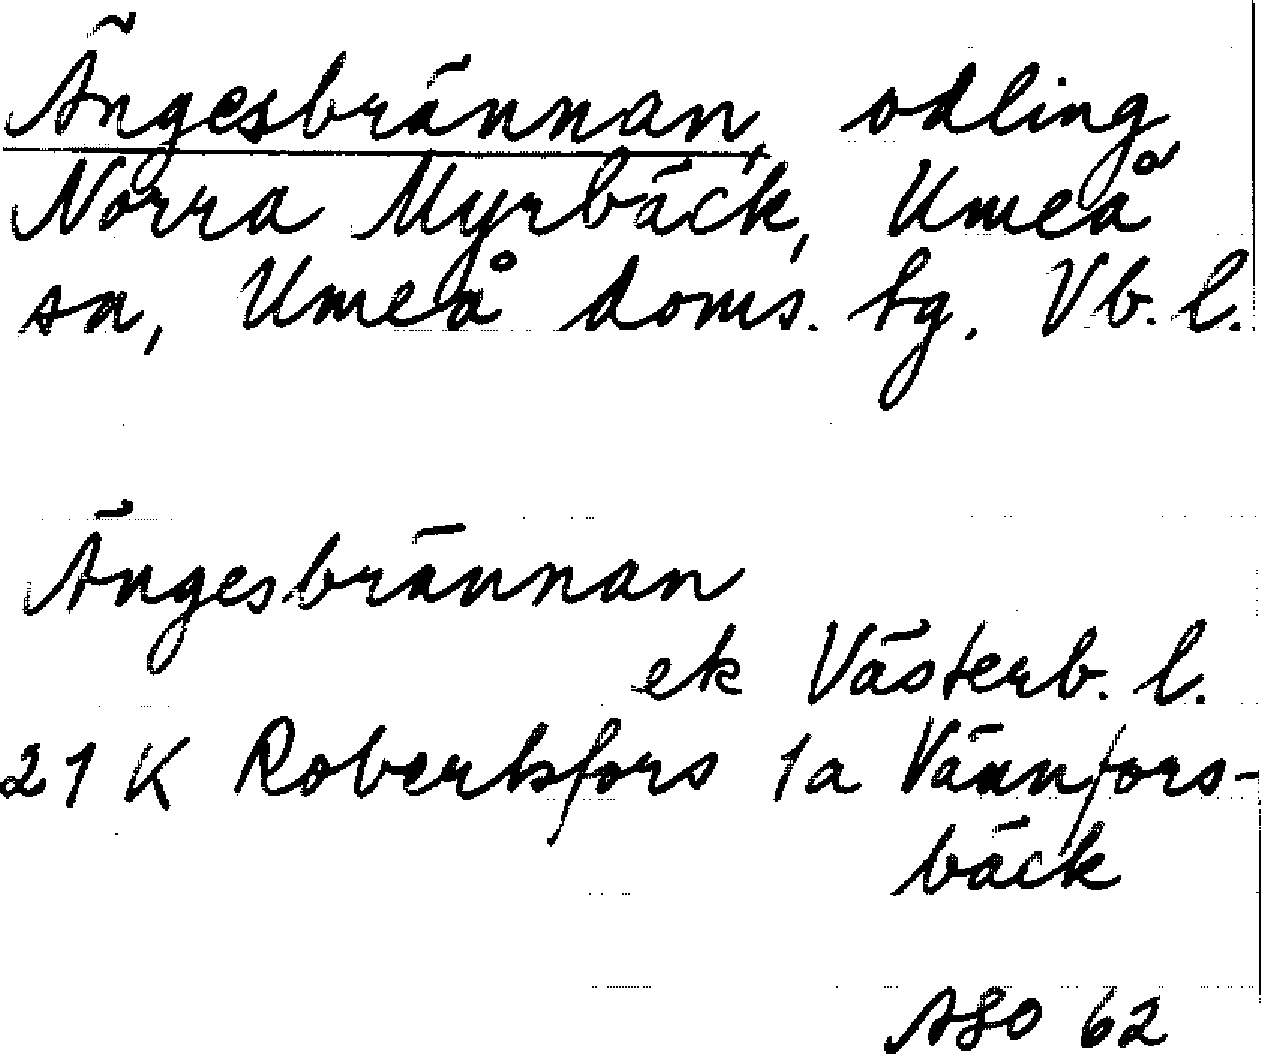 Ängesbrännan, odling,
Norra Myrbäck, Umeå
sn, Umeå doms. tg. Vb. l.
Ängesbrännan
ek Västerb. l.
21 K Robertsfors 1a Vännfors-
bäck
ASO 62